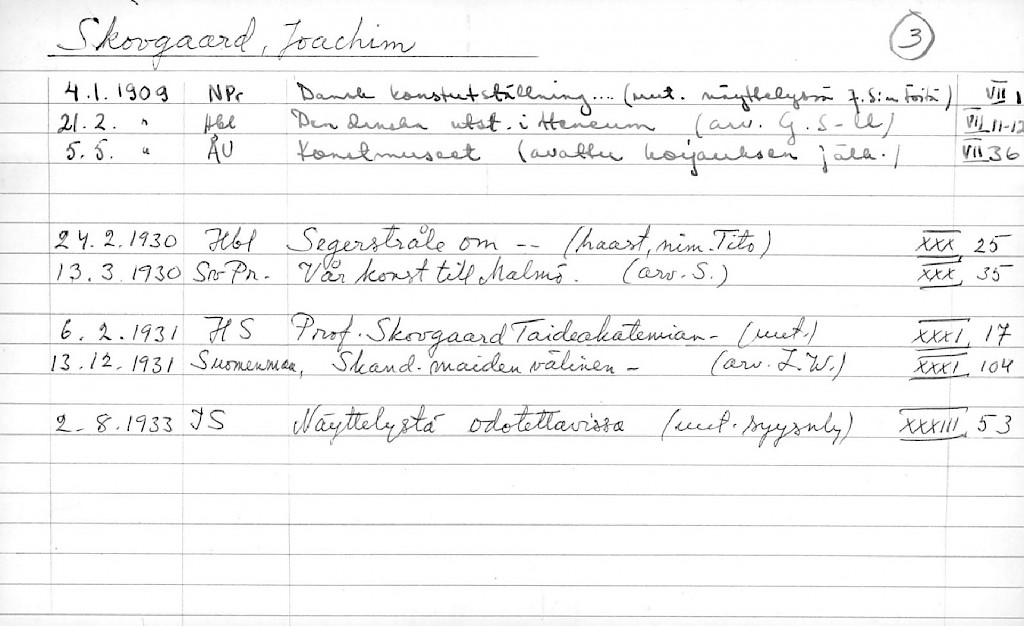 Skovgaard, Joachim 3
4.1.1909 NPr Dansk konstutställning... (uut. näyttelyssä J.S:n töitä) VII 1
21.2. " Hbl Den danska utst. i Ateneum (arv. G. S-ll) VII 11-12
5.5. " ÅU Konstmuseet (avattu korjauksen jälk.) VII 36
24.2.1930 Hbl Segerstråle om -- (haast, nim. Tito) XXX, 25
13.3.1930 Sv-Pr. Vår konst till Malmö. (arv. S.) XXX, 35
6.2.1931 HS Prof. Skovgaard Taideakatemian - (uut.) XXXI, 17
13.12.1931 Suomenmaa, Skand. maiden välinen - (arv. L.W.) XXXI, 104
2.8.1933 IS Näyttelystä odotettavissa (uut. syysnly) XXXIII, 53